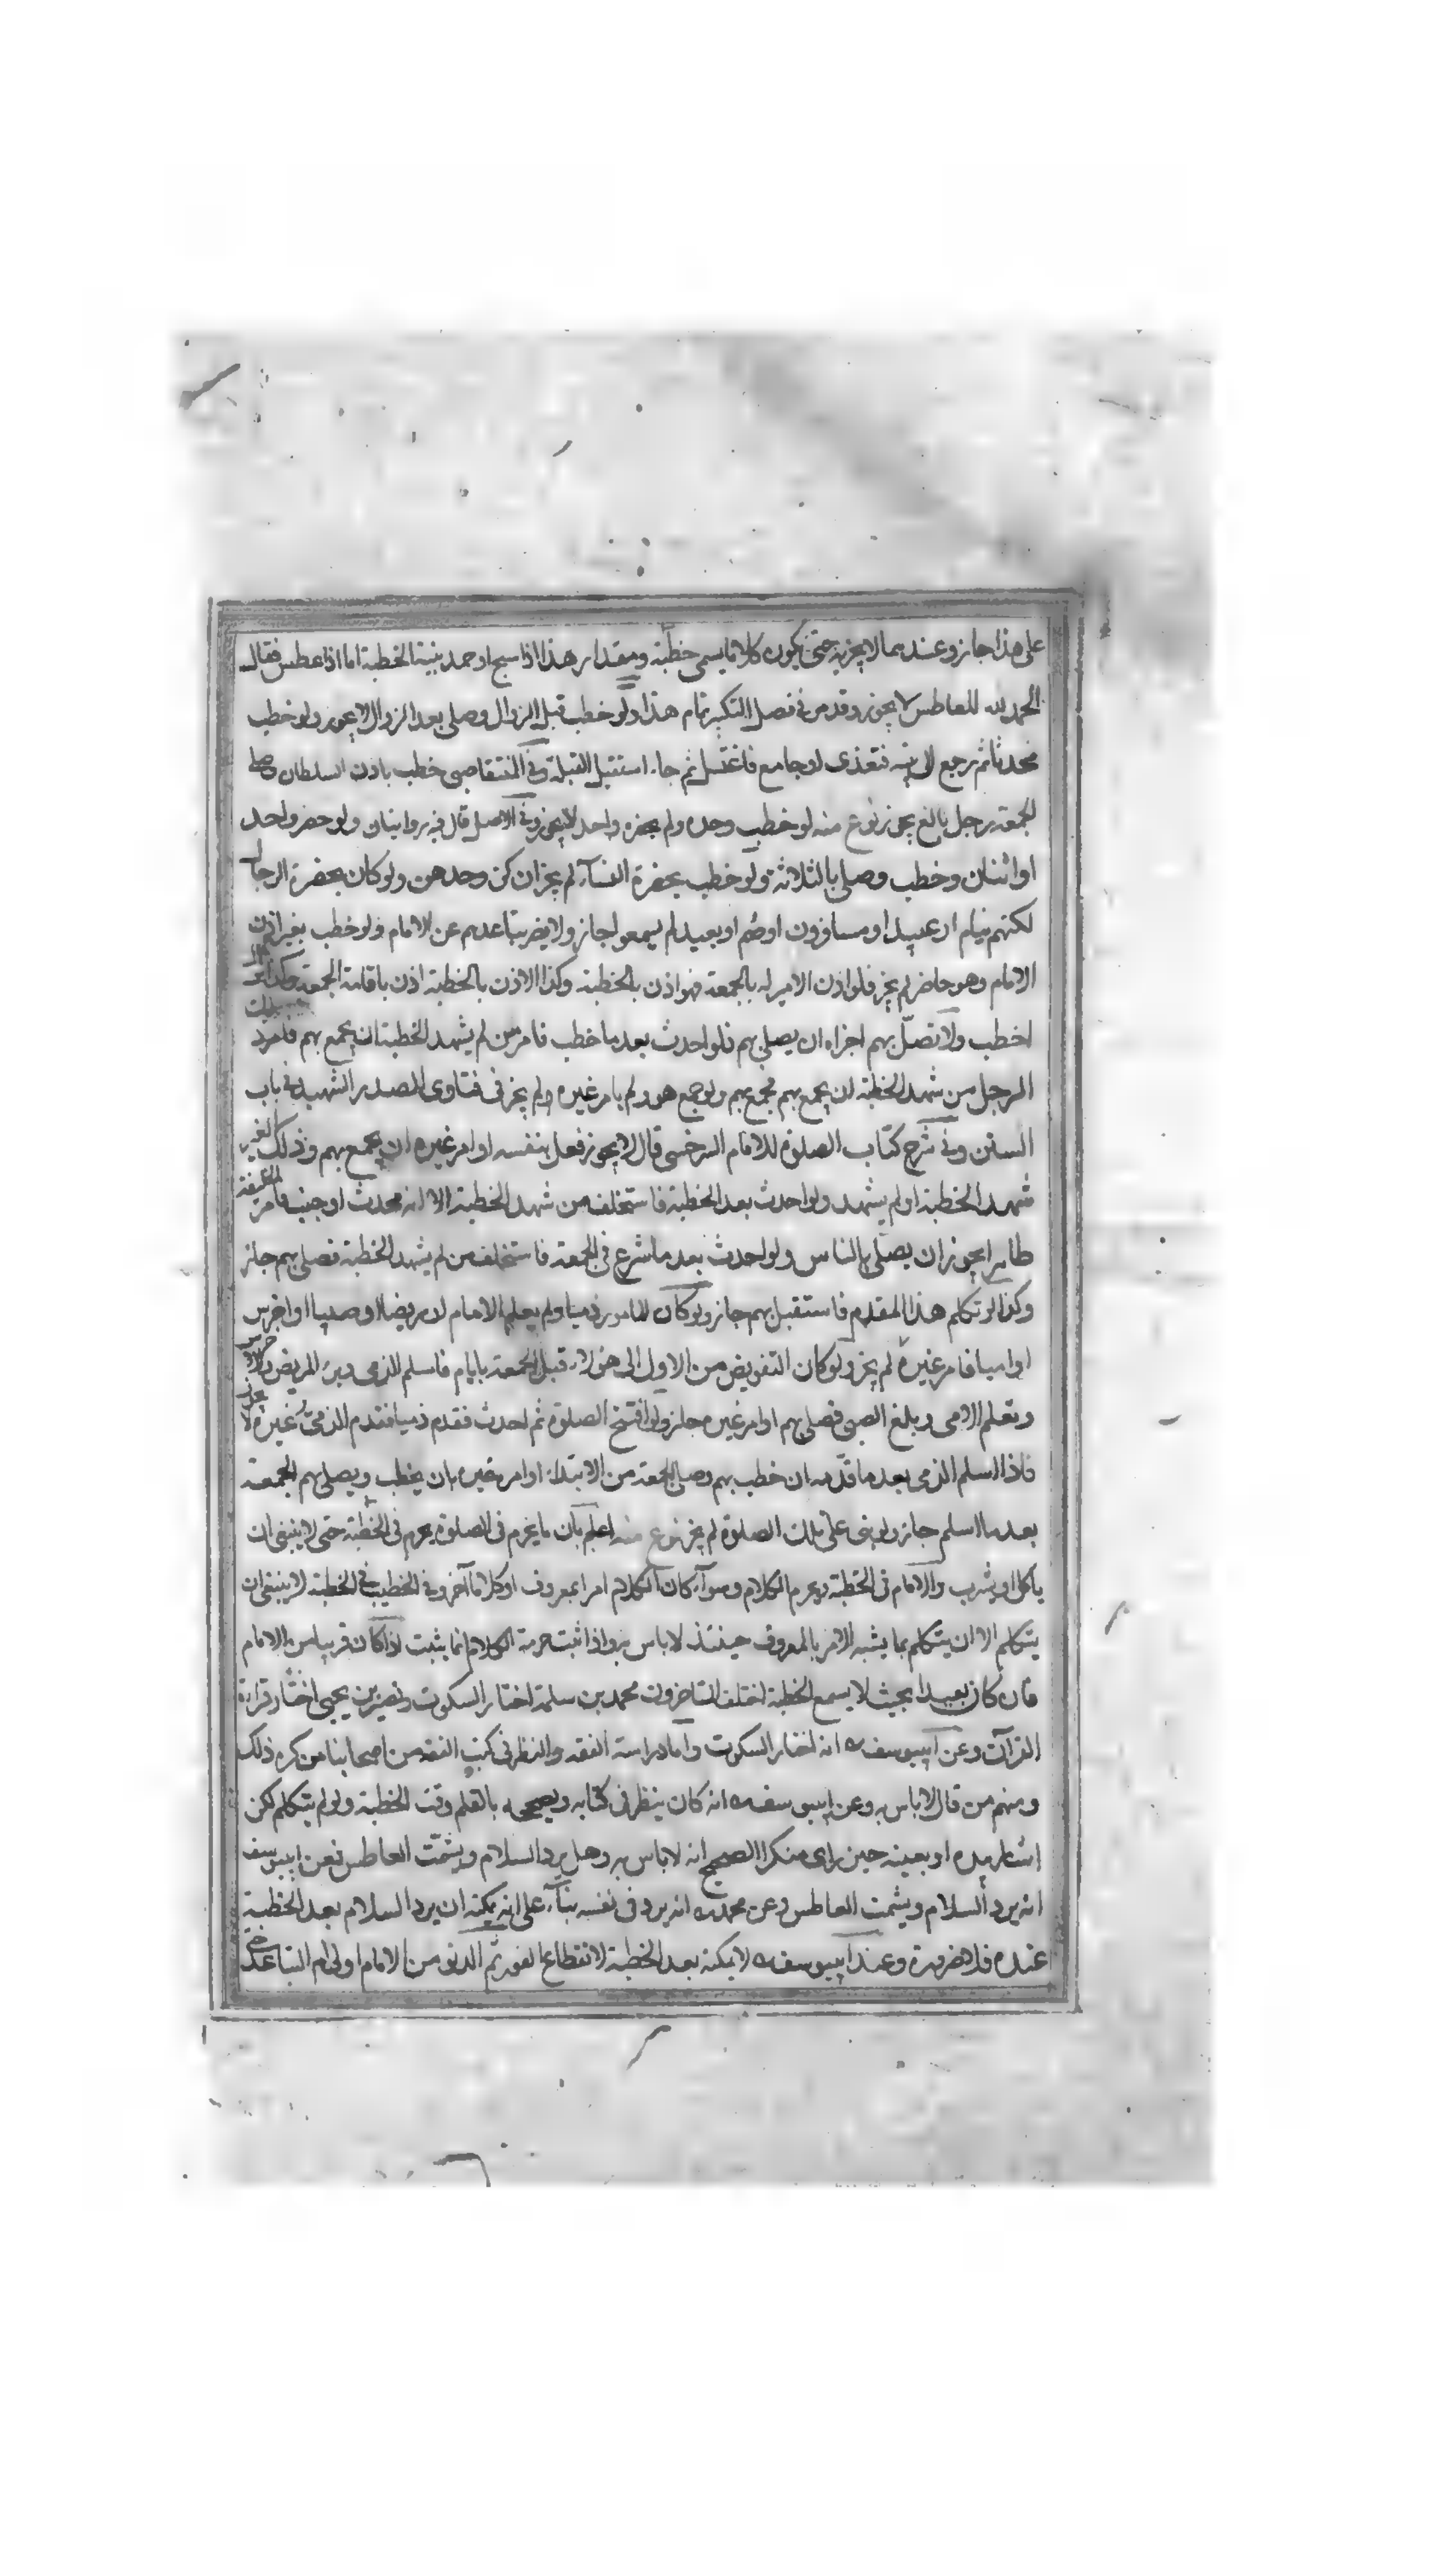 على هذا جاز وعندهما لا يجزيه حتى يكون كلاما يسمى خطبة ومقدار هذا اذا سبح او حمد بنية الخطبة اما اذا عطس فقال
الحمد لله للعاطس لا يجوز وقد مر في فصل التكبير تمام هذا ولو خطب قبل الزوال وصلى بعد الزوال لا يجوز ولو خطب
محدثا ثم رجع الى بيته فتغذى او جامع فاغتسل ثم جاء استقبل القبلة وفي المنتقا صبي خطب باذن السلطان وصلى
الجمعة رجل بالغ يجوز نوع منه لو خطب وحده ولم يحضره واحد لا يجوز وفي الاصل قال فيه روايتان ولو حضر واحد
او اثنان وخطب وصلى بالثلاثة ولو خطب بحضرة النساء لم يجز ان كن وحدهن ولو كان بحضرة الرجال
لكنهم نيام او عبيد او مسافرون او صم او بعيد لم يسمعوا جاز ولا يضر تباعدهم عن الامام ولو خطب بغير اذن
الامام وهو حاضر لم يجز فلو اذن الامير له بالجمعة فهو اذن بالخطبة وكذا الاذن بالخطبة اذن باقامة الجمعة وكذا لو قال
اخطب ولا تصل بهم اجزاه ان يصلي بهم فلو احدث بعد ما خطب فامر من لم يشهد الخطبة ان يجمع بهم فامر ذلك
الرجل من شهد الخطبة ان يجمع بهم فجمع بهم ولو جمع هو ولم يامر غيره لم يجز في فتاوى الصدر الشهيد في باب
السين وفي شرح كتاب الصلوة للامام السرخسي قال لا يجوز فعل بنفسه او امر غيره ان يجمع بهم وذلك الغير
شهد الخطبة او لم يشهد ولو احدث بعد الخطبة فاستخلف من شهد الخطبة الا انه محدث او جنب فامر الخليفة
طاهرا يجوز ان يصلي بالناس ولو احدث بعد ما شرع في الجمعة فاستخلف من لم يشهد الخطبة فصلى بهم جاز
وكذا لو تكلم هذا المقدم فاستقبل بهم جاز ولو كان المامور ذميا ولم يعلم الامام او مريضا او صبيا او اخرس
او اميا فامر غيره لم يجز ولو كان التفويض من الاول الى هؤلاء قبل الجمعة بايام فاسلم الذمي وبرئ المريض والاخرس
وتعلم الامي وبلغ الصبي فصلى بهم او امر غيره جاز ولو افتتح الصلوة ثم احدث فقدم ذميا فقدم الذمي غيره لا يجوز
فاذا اسلم الذمي بعد ما قدمه ان خطب بهم وصلى الجمعة من الابتداء او امر غيره بان يخطب ويصلي بهم الجمعة
بعد ما اسلم جاز ولو بنى على تلك الصلوة لم يجز نوع منه اعلم بان ما يحرم في الصلوة يحرم في الخطبة حتى لا ينبغي ان
ياكل او يشرب والامام في الخطبة ويحرم الكلام وسواء كان الكلام امرا بمعروف او كلاما آخر وفي الخطيب في الخطبة لا ينبغي ان
يتكلم الا ان يتكلم بما يشبه الامر بالمعروف حينئذ لا باس به واذا ثبت حرمة الكلام انما يثبت اذا كان قريبا من الامام
فان كان بعيدا بحيث لا يسمع الخطبة اختلف المتاخرون محمد بن سلمة اختار السكوت ونصير بن يحيى اختار قراءة
القرآن وعن ابيوسف انه اختار السكوت واما دراسة الفقه والنظر في كتب الفقه من اصحابنا من كره ذلك
ومنهم من قال لا باس به وعن ابييوسف انه كان ينظر في كتابه ويصححه بالقلم وقت الخطبة ولو لم يتكلم لكن
اشار بيده او بعينه حين راى منكرا الصحيح انه لا باس به وهل يرد السلام ويشمت العاطس فعن ابييوسف
انه يرد السلام ويشمت العاطس وعن محمد انه يرد في نفسه بناء على انه يمكنه ان يرد السلام بعد الخطبة
عنده فلا ضرورة وعند ابييوسف لا يمكنه بعد الخطبة لانقطاع الفور ثم الدنو من الامام اولى ام التباعد